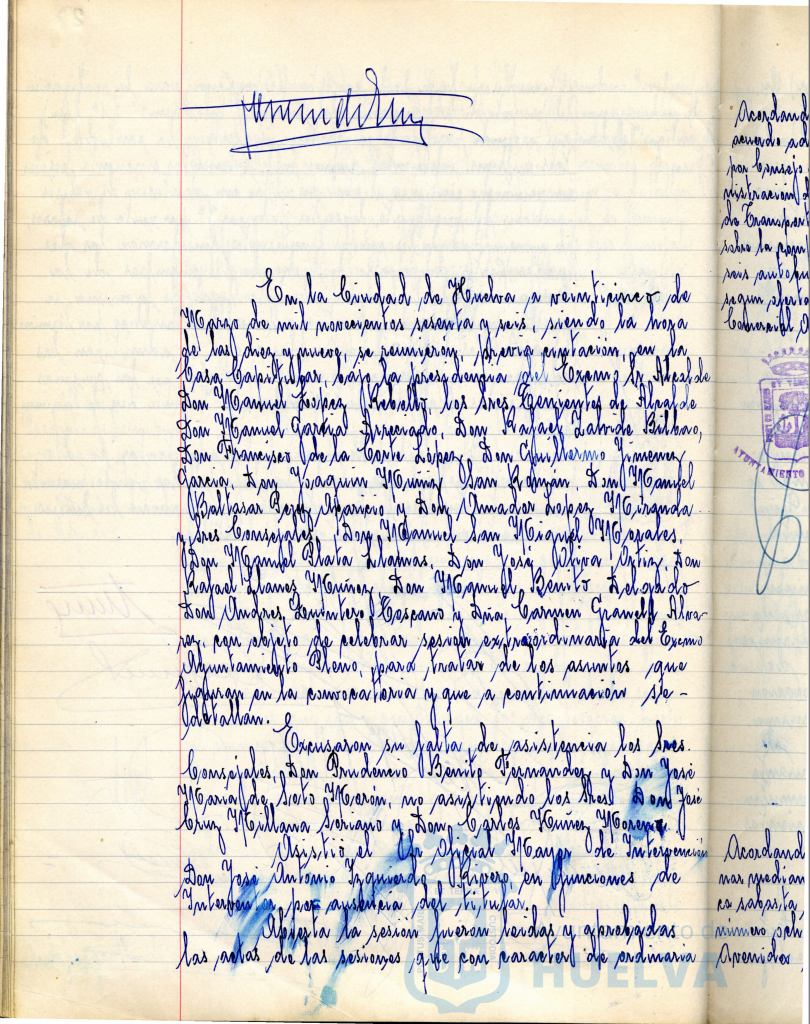 En la Ciudad de Huelva a veinticinco de
Marzo de mil novecientos sesenta y seis, siendo la hora
de las diez y nueve, se reunieron, previa citación, en la
Casa Capitular, bajo la presidencia del Excmo Sr Alcalde
Don Manuel López Rebollo, los Sres Tenientes de Alcalde
Don Manuel Garcia, Don Rafael Bilbao,
Don Francisco de la Corte López, Don Guillermo Jimenez
Garcia, Don Joaquin Muñiz San Román, Don Manuel
Baltasar Perez Aparicio y Don Amador Lopez Miranda
y Sres Consejales, Don Manuel San Miguel Morales,
Don Manuel Plata Llamas, Don José Oliva Ortiz, Don
Rafael Llanes Muñoz, Don Manuel Benito Delgado
Don Andres Quintero Toscano y Dña Carmen Granell Alva-
rez con objeto de celebrar sesión extraordinaria del Excmo
Ayuntamiento Pleno, para tratar de los asuntos que
figuran en la convocatoria y que a continuación se -
detallan.
Excusaron su falta de asistencia los Sres.
Consejales, Don Prudencio Benito Fernandez y Don José
Maria de Soto Morón, no asistiendo los Sres Don José
Cruz Millana Soriano y Don Carlos Núñez Moreno.
Asistió el Sr Oficial Mayor de Intervención
Don José Antonio Izquierdo Rivero, en funciones de
Interventor por ausencia del titular.
Abierta la sesión fueron leidas y aprobadas
las actas de las sesiones que con caracter de ordinaria
Acordand
acuerdo ad
por Consejo
nistración d
de Transport
sobre la com
seis autobu
segun oferta
Comercial
AYUNTAMIENTO
Acordand
nas median
ca subasta,
numero och
Avenidas
HUELVA